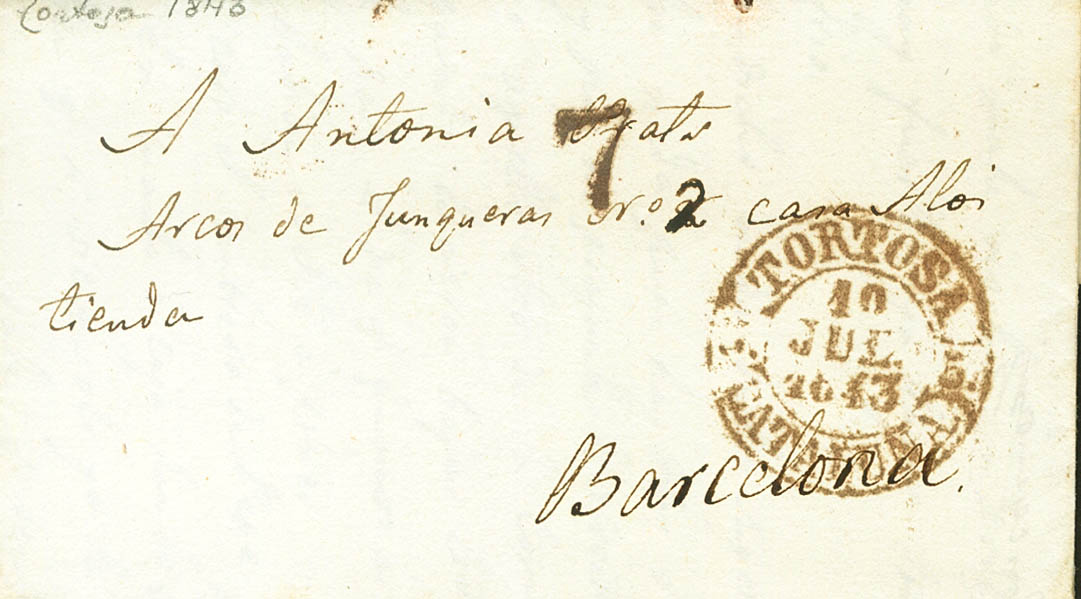 Tortosa 1843
A Antonia Prats
7
Arcos de Junqueras No. 2 casa Aloi
tienda
TORTOSA
JUL.
1843
CATALUÑA
Barcelona.